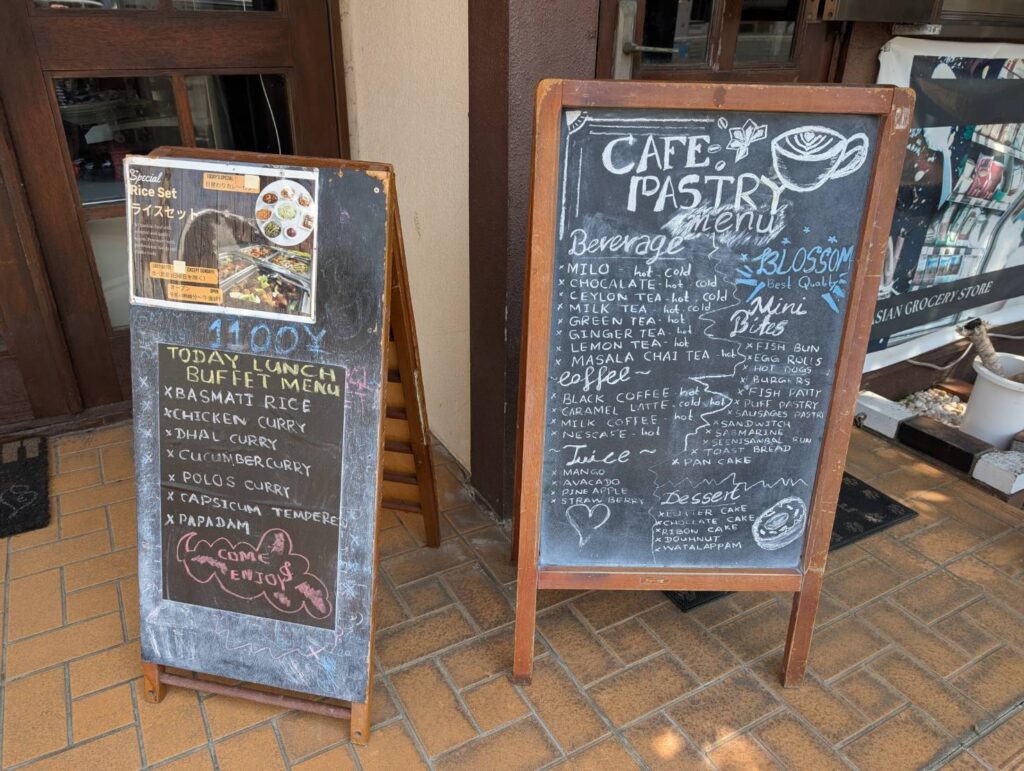 Special
Rice Set
ライスセット
TODAY'S SPECIAL
EXCEPT SUNDAYS
オープン
1100¥
TODAY LUNCH
BUFFET MENU
×BASMATI RICE
×CHICKEN CURRY
×DHAL CURRY
×CUCUMBERCURRY
×POLOS CURRY
×CAPSICUM TEMPERED
×PAPADAM
COME
ENJOY
CAFE
PASTRY
menu
Beverage
×MILO hot cold
×CHOCOLATE-hot, cold
×CEYLON TEA-hot, cold
×MILK TEA-hot, cold
×GREEN TEA-hot
×GINGER TEA-hot
LEMON TEA-hot
×MASALA CHAI TEA-hot
~coffee~
BLACK COFFEE-hot
×CARAMEL LATTE-cold, hot
×MILK COFFEE hot
×NESCAFE-hot
~Juice~
×MANGO
×AVACADO
×PINEAPPLE
×STRAW BERRY
BLOSSOM
Best Quality
Mini
Bites
×FISH BUN
×EGG ROLLS
×HOT DOGS
×BURGERS
×FISH PATTY
×PUFF PASTRY
×SAUSAGES PASTRI
×SANDWITCH
×SABMARINE
×SEENISAMBAL BUN
×TOAST BREAD
×PAN CAKE
Dessert
×BUTTER CAKE
×CHOCLATE CAKE
×RIBON CAKE
×DOUHNUT
×WATALAPPAM
ASIAN GROCERY STORE